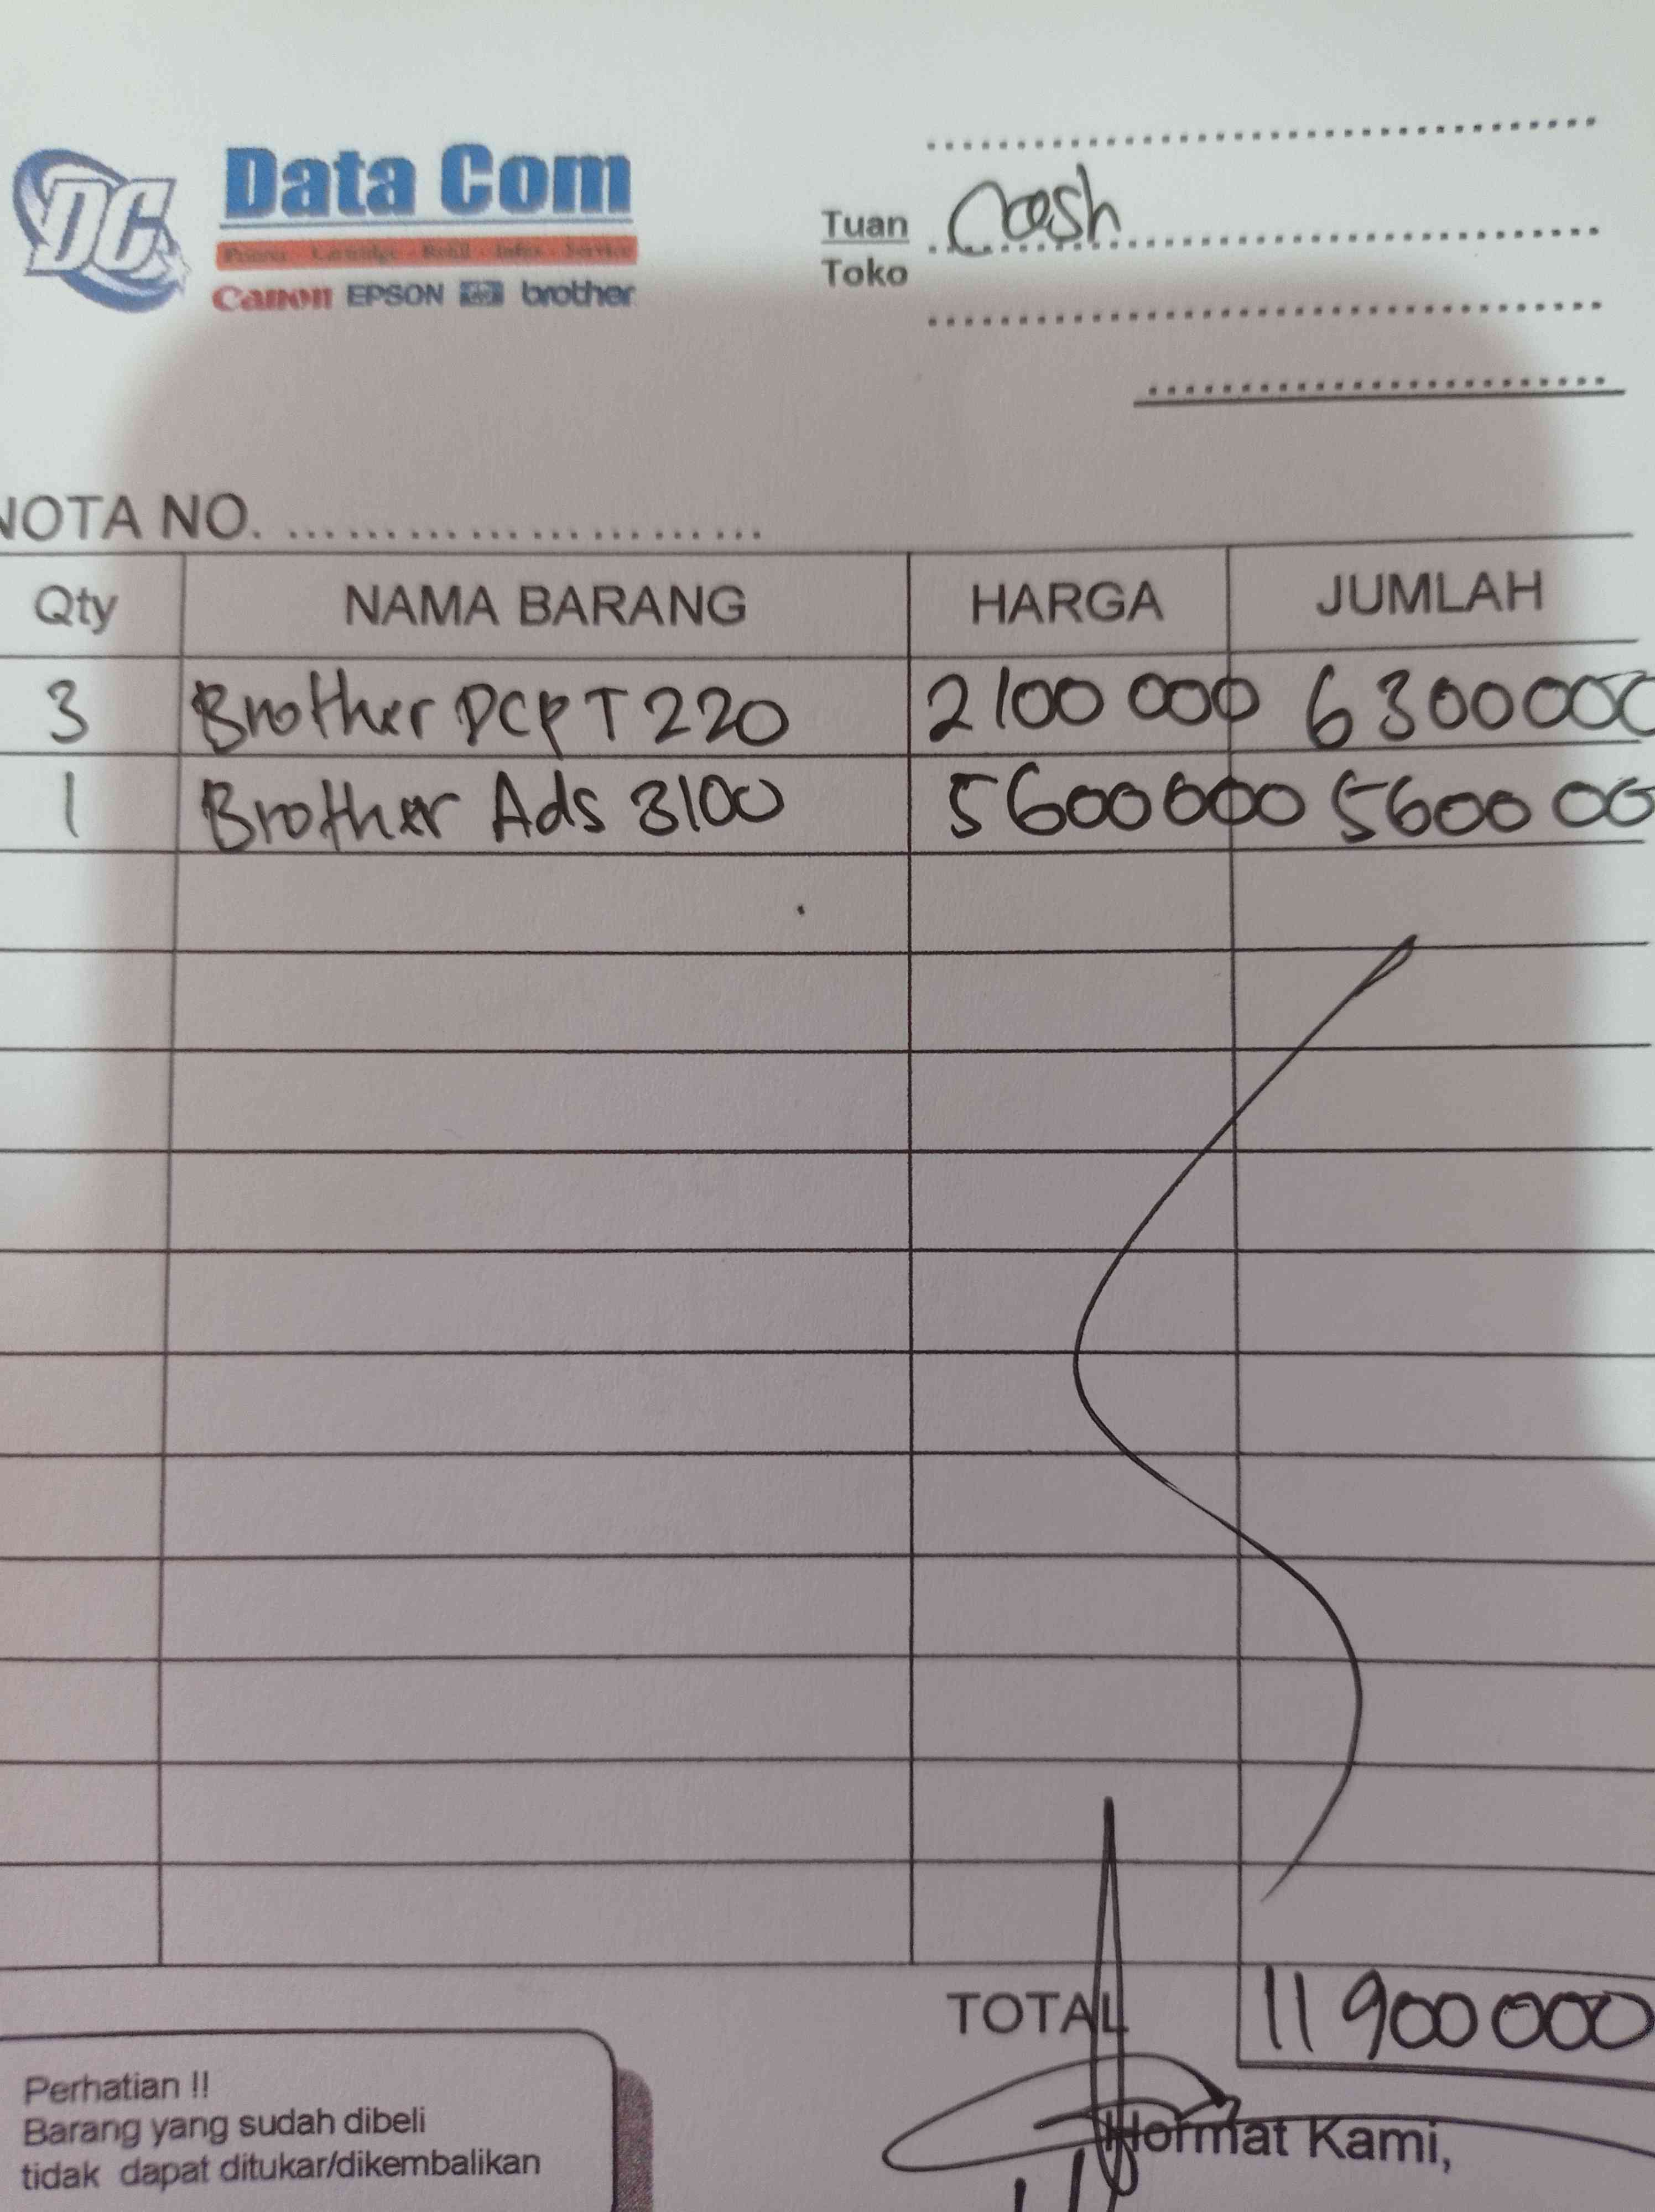 DC Data Com
Printer - Cartridge - Refill - Infus - Service
Canon EPSON hp brother
Tuan Cash
Toko
NOTA NO. ........................
Qty NAMA BARANG HARGA JUMLAH
3 Brother DCP T 220 2100 000 6300000
1 Brother Ads 3100 5600000 5600 00
TOTAL 11 900 000
Perhatian !!
Barang yang sudah dibeli
tidak dapat ditukar/dikembalikan
Hormat Kami,